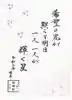 希望の光が
照らす明日
一人一人が
輝く星